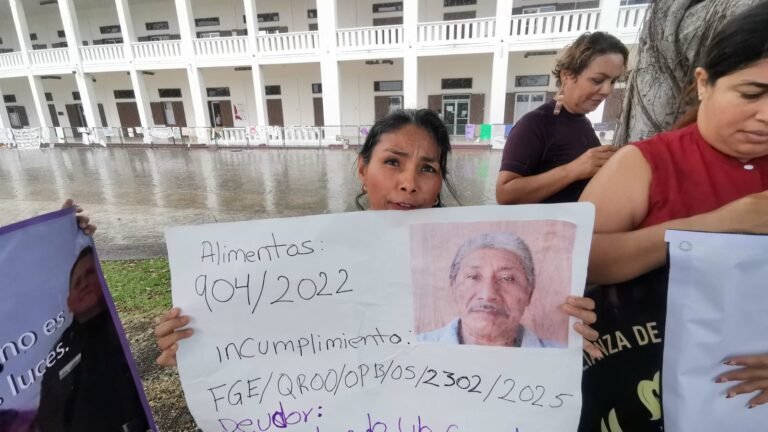 Alimentos:
904/2022
incumplimiento:
FGE/QROO/OPB/05/2302/2025
Deudor:
no es
luces.
NZA DE